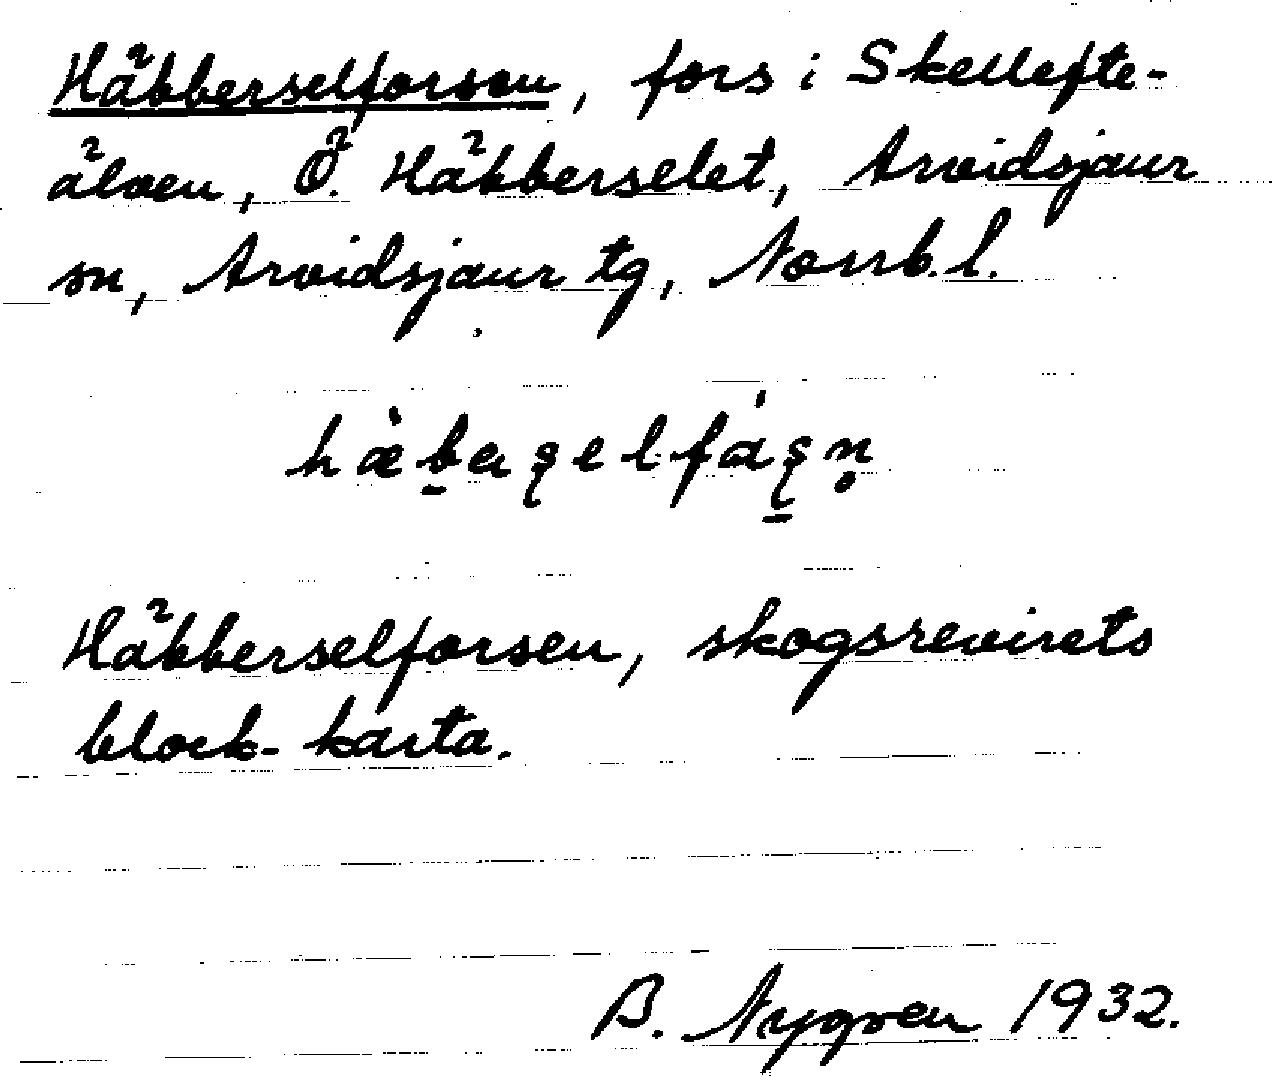 Häbberselforsen, fors i Skellefte-
älven, Ö. Häbberselet, Arvidsjaur
sn, Arvidsjaur tg, Norrb. l.
Häbberselforsen, skogsrevirets
block-karta.
B. Nygren 1932.